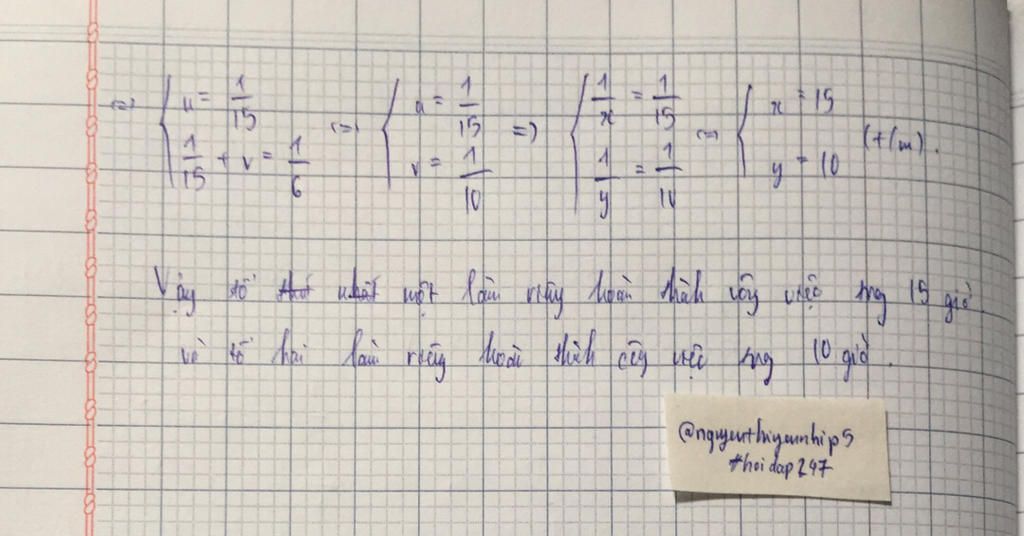 <=> { u = 1/15 ; 1/15 + v = 1/6 (=) { u = 1/15 ; v = 1/10 =) { 1/x = 1/15 ; 1/y = 1/10 (=) { x = 15 ; y = 10 (t/m).
Vậy tổ một làm riêng hoàn thành công việc trong 15 giờ.
và tổ hai làm riêng hoàn thành công việc trong 10 giờ.
@nguyenthiyennhip5
#hoidap247